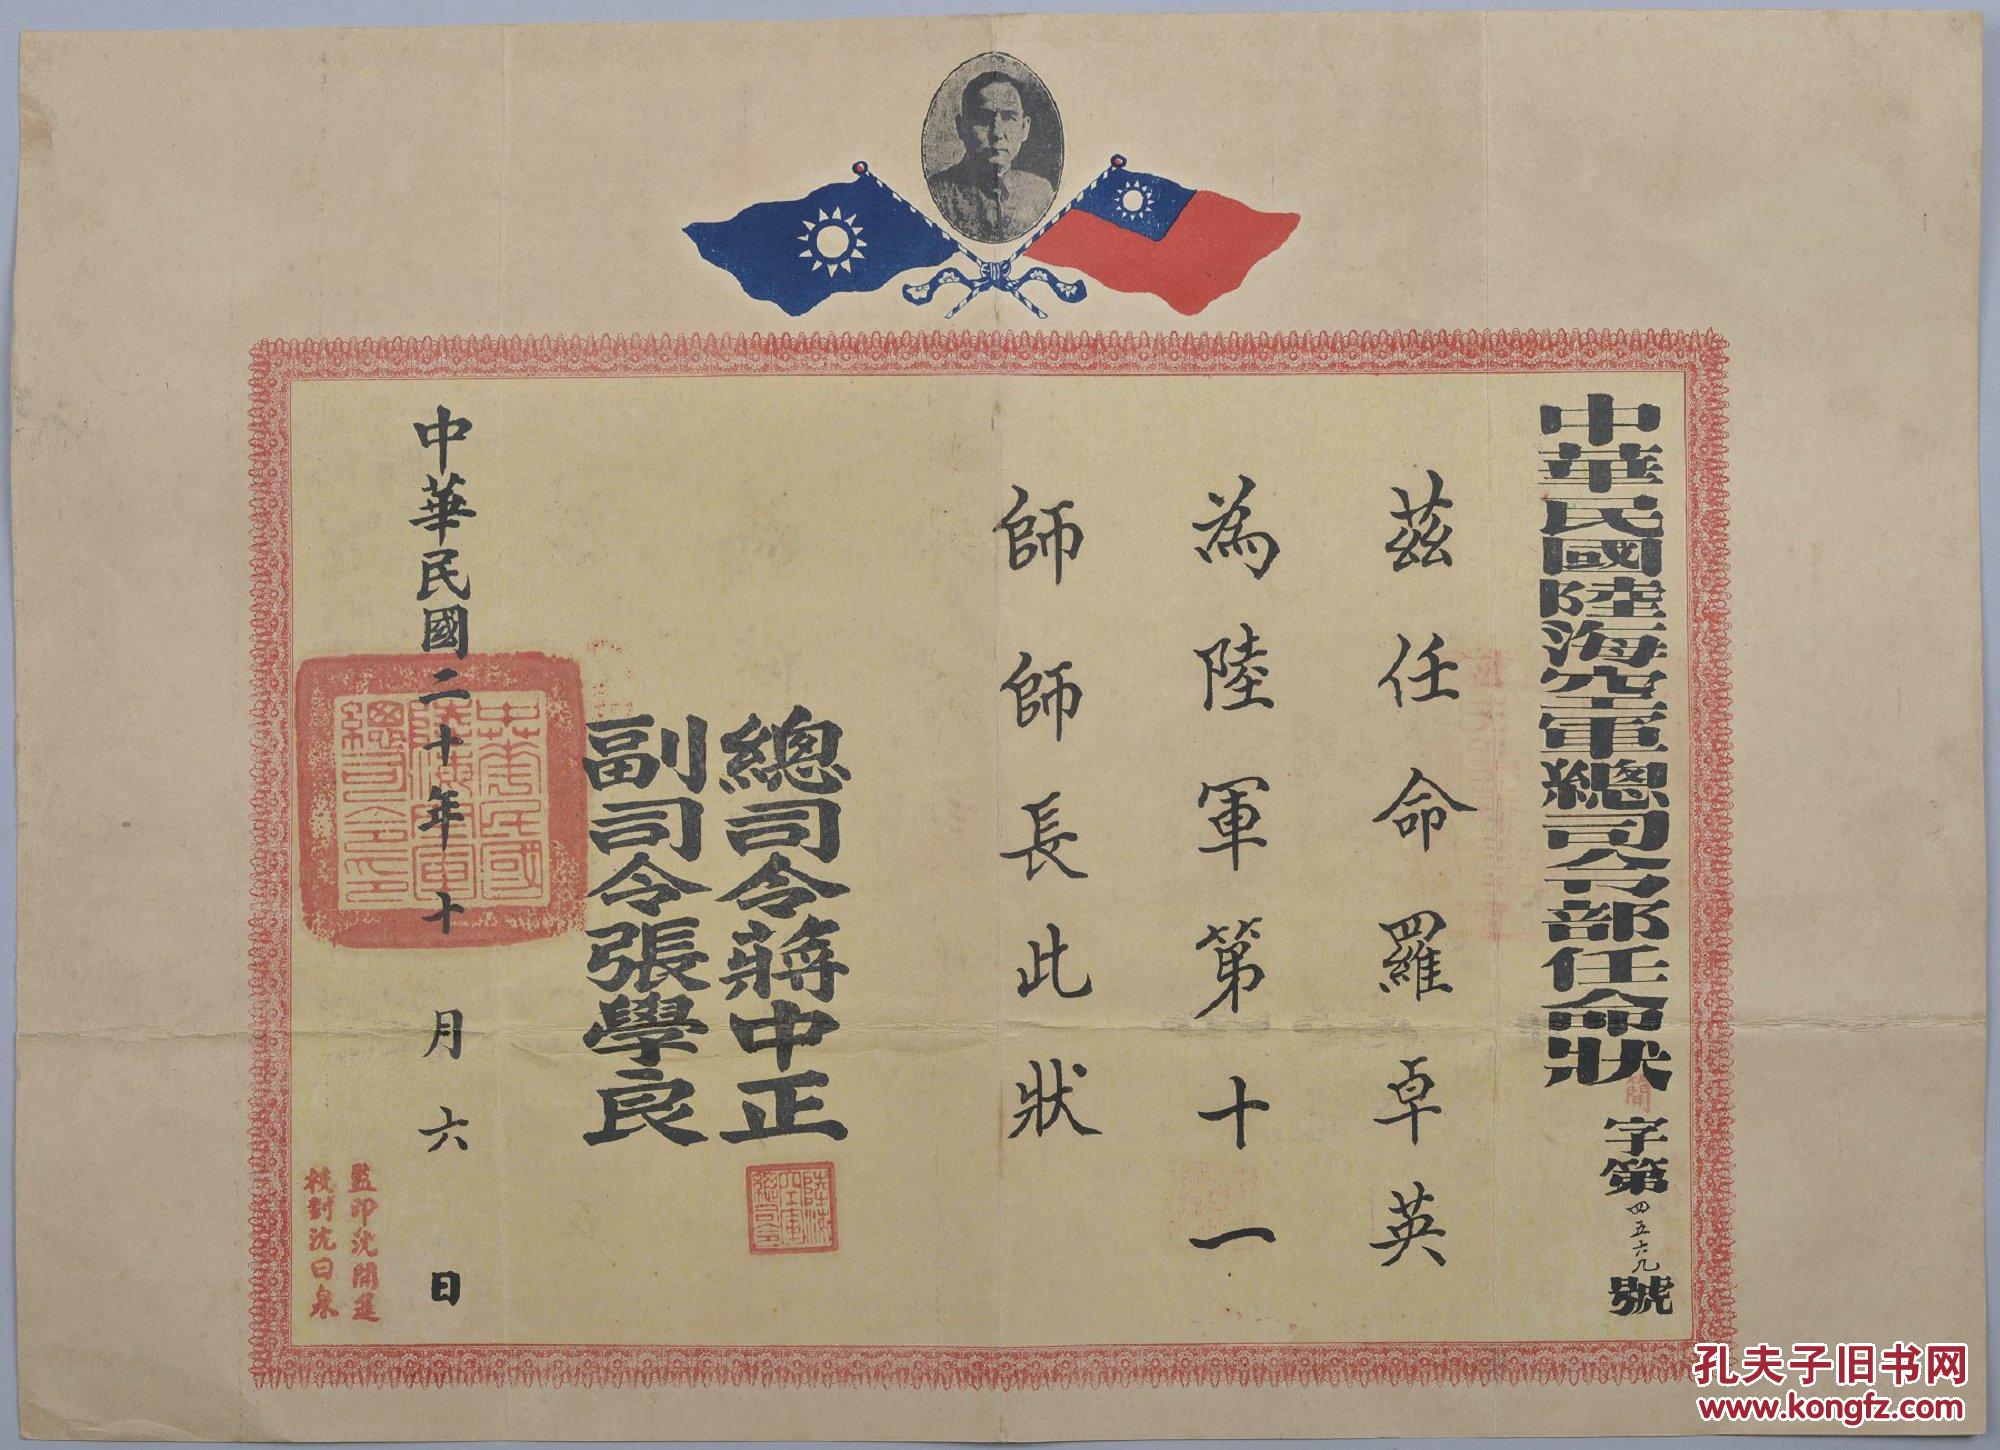 中華民國陸海空軍總司令部任命狀
簡字第四五六九號
茲任命羅卓英
為陸軍第十一
師師長此狀
總司令蔣中正
副司令張學良
陸海空軍總司令
中華民國二十年十月六日
中華民國陸海空軍總司令印
監印沈開運
校對沈曰泉
孔夫子旧书网
www.kongfz.com